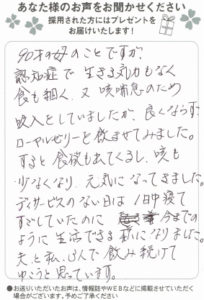 あなた様のお声をお聞かせください
採用された方にはプレゼントを
お届けいたします!
90才の母のことですが、
認知症で生きる気力もなく
食も細く、又咳喘息のため
吸入としていましたが、良くならず
ローヤルゼリーを飲ませてみました。
すると食欲も出てくるし、咳も
少なくなり、元気になってきました。
デイサービスのない日は1日中寝て
すごしていたのに 今までの
ように生活できる様になりました。
夫と私、3人で飲み続けて
ゆこうと思っています。
●お送りいただいたお声は、情報誌やWEBなどに掲載させていただく
場合がございます。予めご了承ください